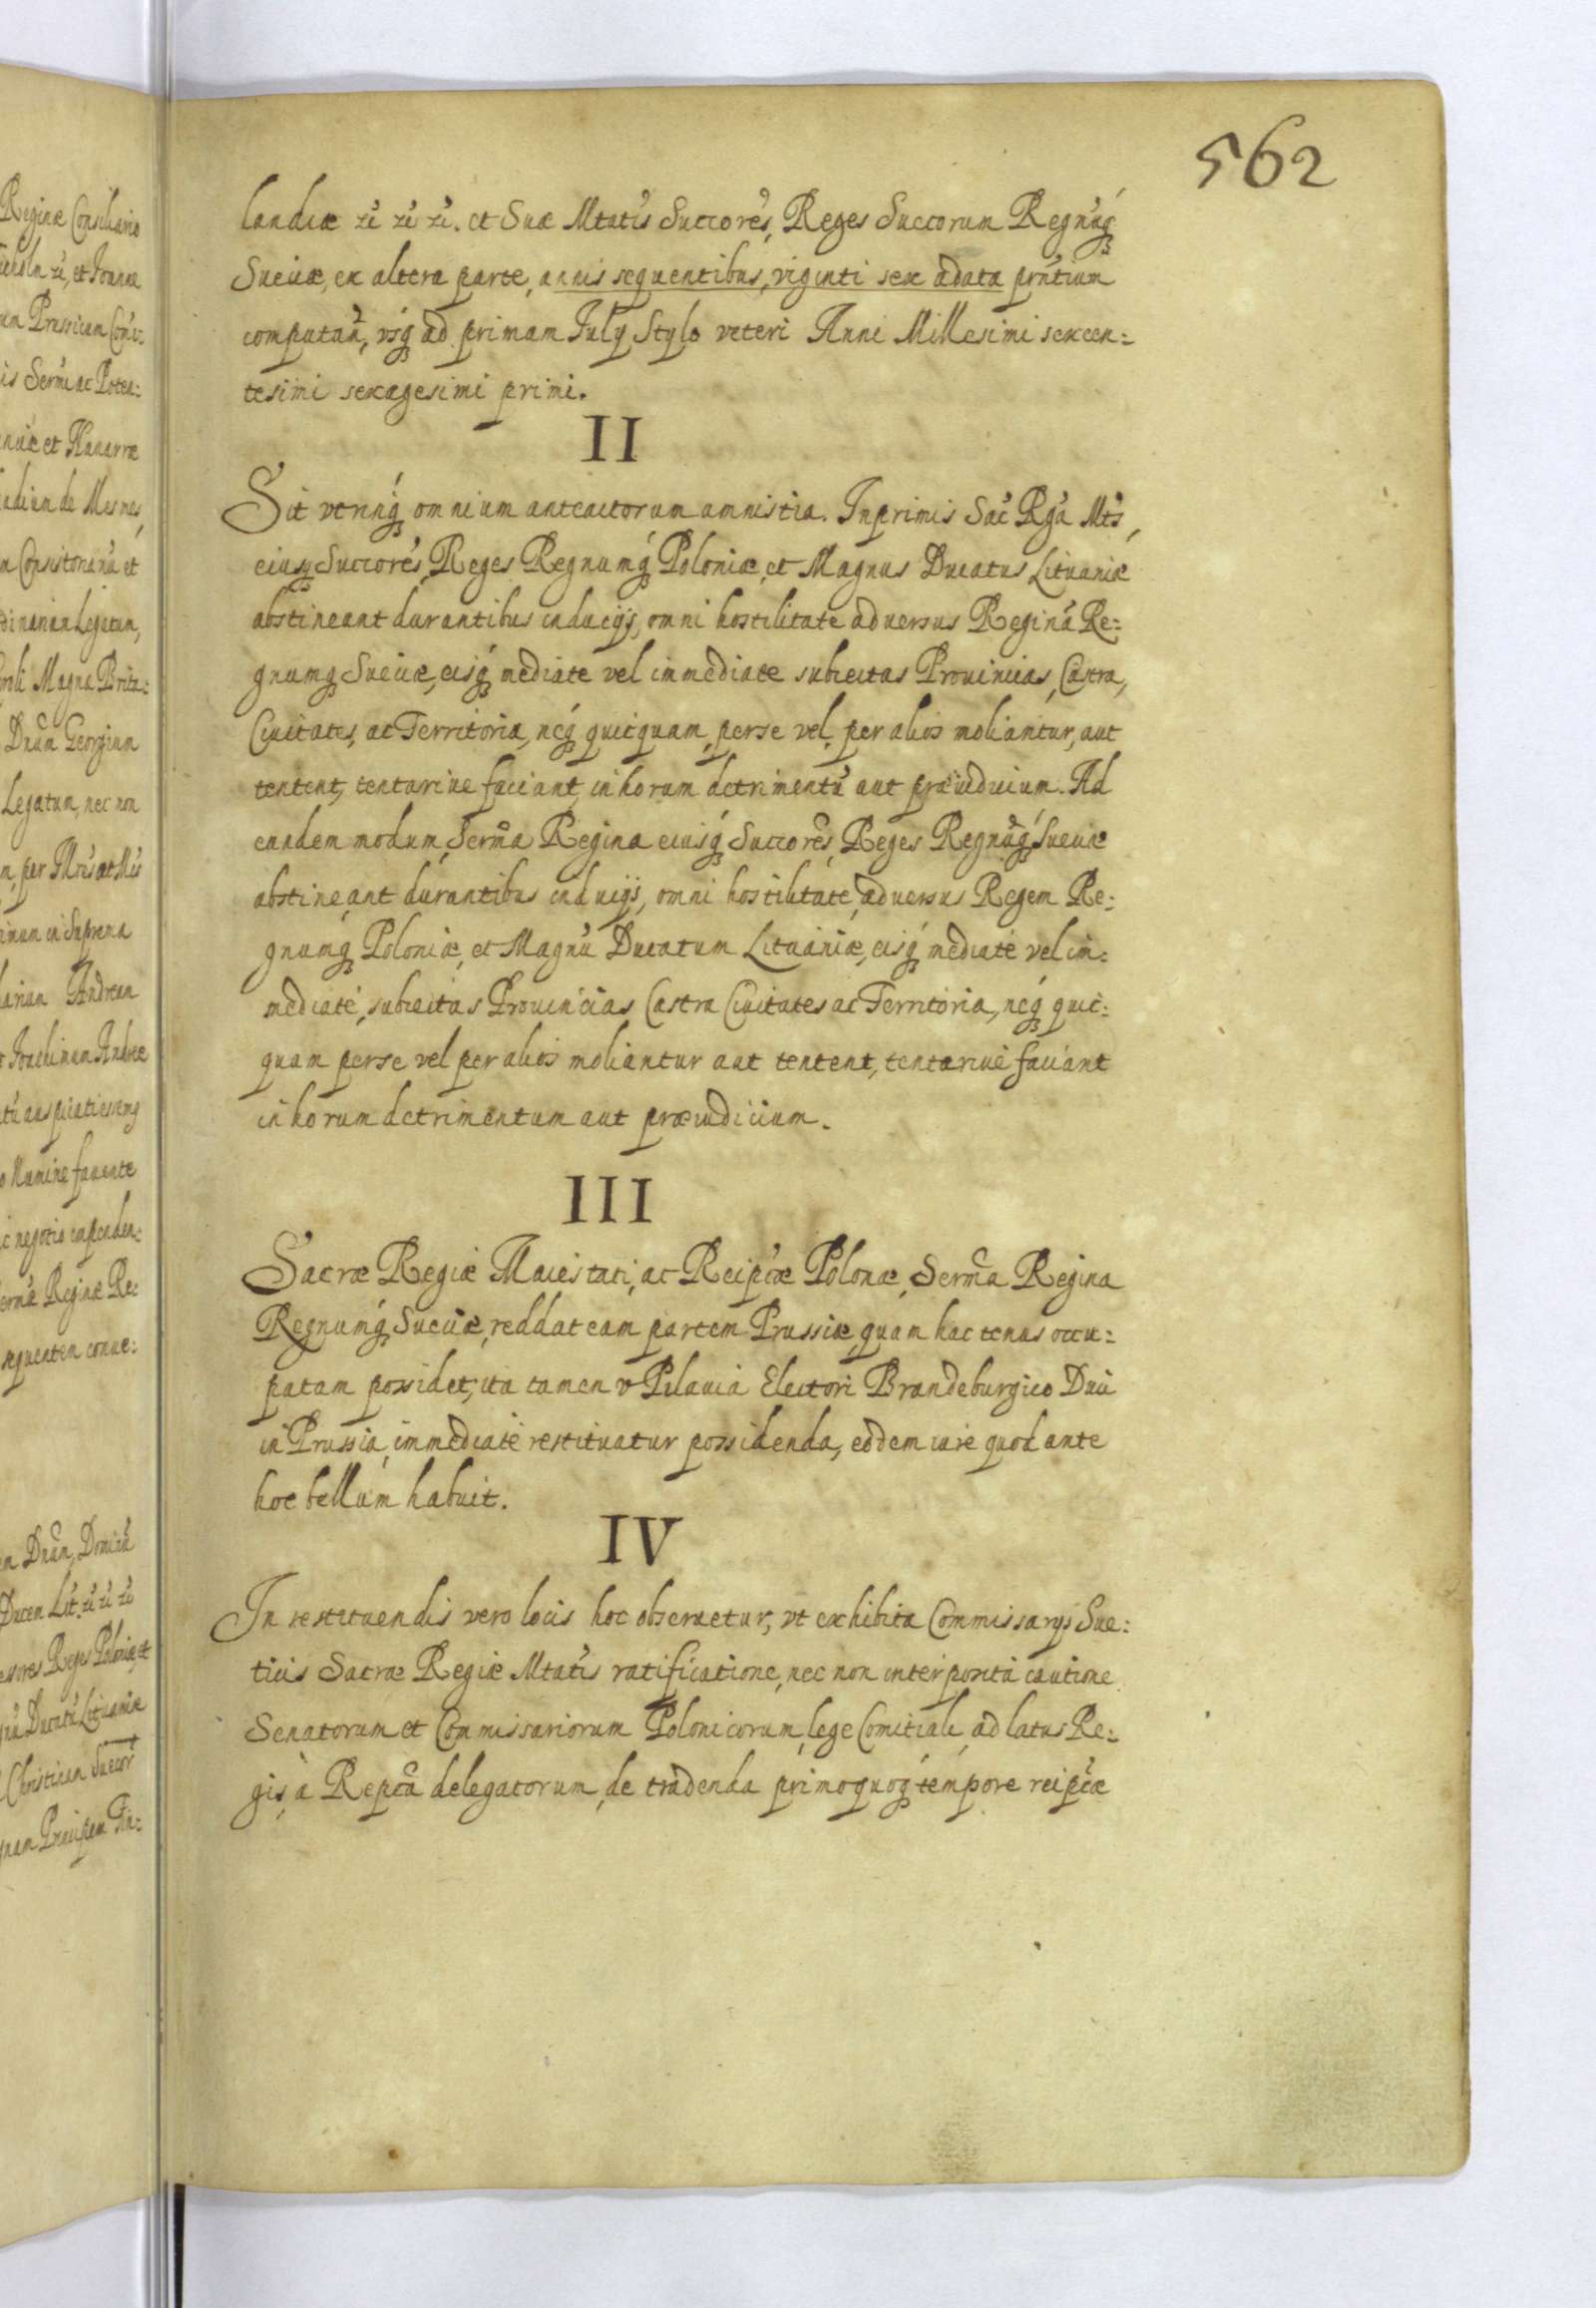 562
landiæ zc̃ zc̃ zc̃. et Suæ Mtatis Succores, Reges Suecorum Regnũq́
Sueciæ, ex altera parte, annis sequentibus, viginti sex adata prñtium
computañ, vsq́ ad primam July Stylo veteri Anni Millesimi sexcen:
tesimi sexagesimi primi.
II
Sit vtrinq́ omnium anteactorum amnistia. Inprimis Sac̃ Rgã Mts̃,
eiusq Succores, Reges Regnumq́ Poloniæ, et Magnus Ducatus Lituaniæ
abstineant durantibus inducijs, omni hostilitate aduersus Reginã Re:
gnumq Sueciæ, eisq́ mediate vel immediate subiectas Prouincias, Castra,
Ciuitates, ac Territoria, neq́ quicquam, perse vel, per alios moliantur, aut
tentent, tentariue faciant, in horum detrimentũ aut præiudicium. Ad
eundem modum, Serm̃a Regina eiusq́ Succores, Reges Regnũq́ Sueciæ
abstineant durantibus inducijs, omni hostilitate, aduersus Regem Re:
gnumq́ Poloniæ, et Magnũ Ducatum Lituaniæ, eisq́ mediatè vel im:
mediatè, subiectas Prouincias Castra Ciuitates ac Territoria, neq́ quic:
quam perse vel per alios moliantur aut tentent, tentariuè faciant
in horum detrimentum aut præiudicium.
III
Sacræ Regiæ Maiestati, ac Reipc̃æ Polonæ, Serm̃a Regina
Regnumq́ Sueciæ, reddat eam partem Prussiæ, quam hactenus occu:
patam possidet, ita tamen v Pilauia Electori Brandeburgico Duci
in Prussia, immediatè restituatur possidenda, eodem iure quod ante
hoc bellum habuit.
IV
In restituendis vero locis hoc obseruetur, vt exhibita Commissarys Sue:
ticis Sacræ Regiæ Mtatis ratificatione, nec non interposita cautione
Senatorum et Commissariorum Polonicorum, lege Comitiali, ad latus Re:
gis, à Repc̃a delegatorum, de tradenda primoquoq́ tempore reipc̃æ